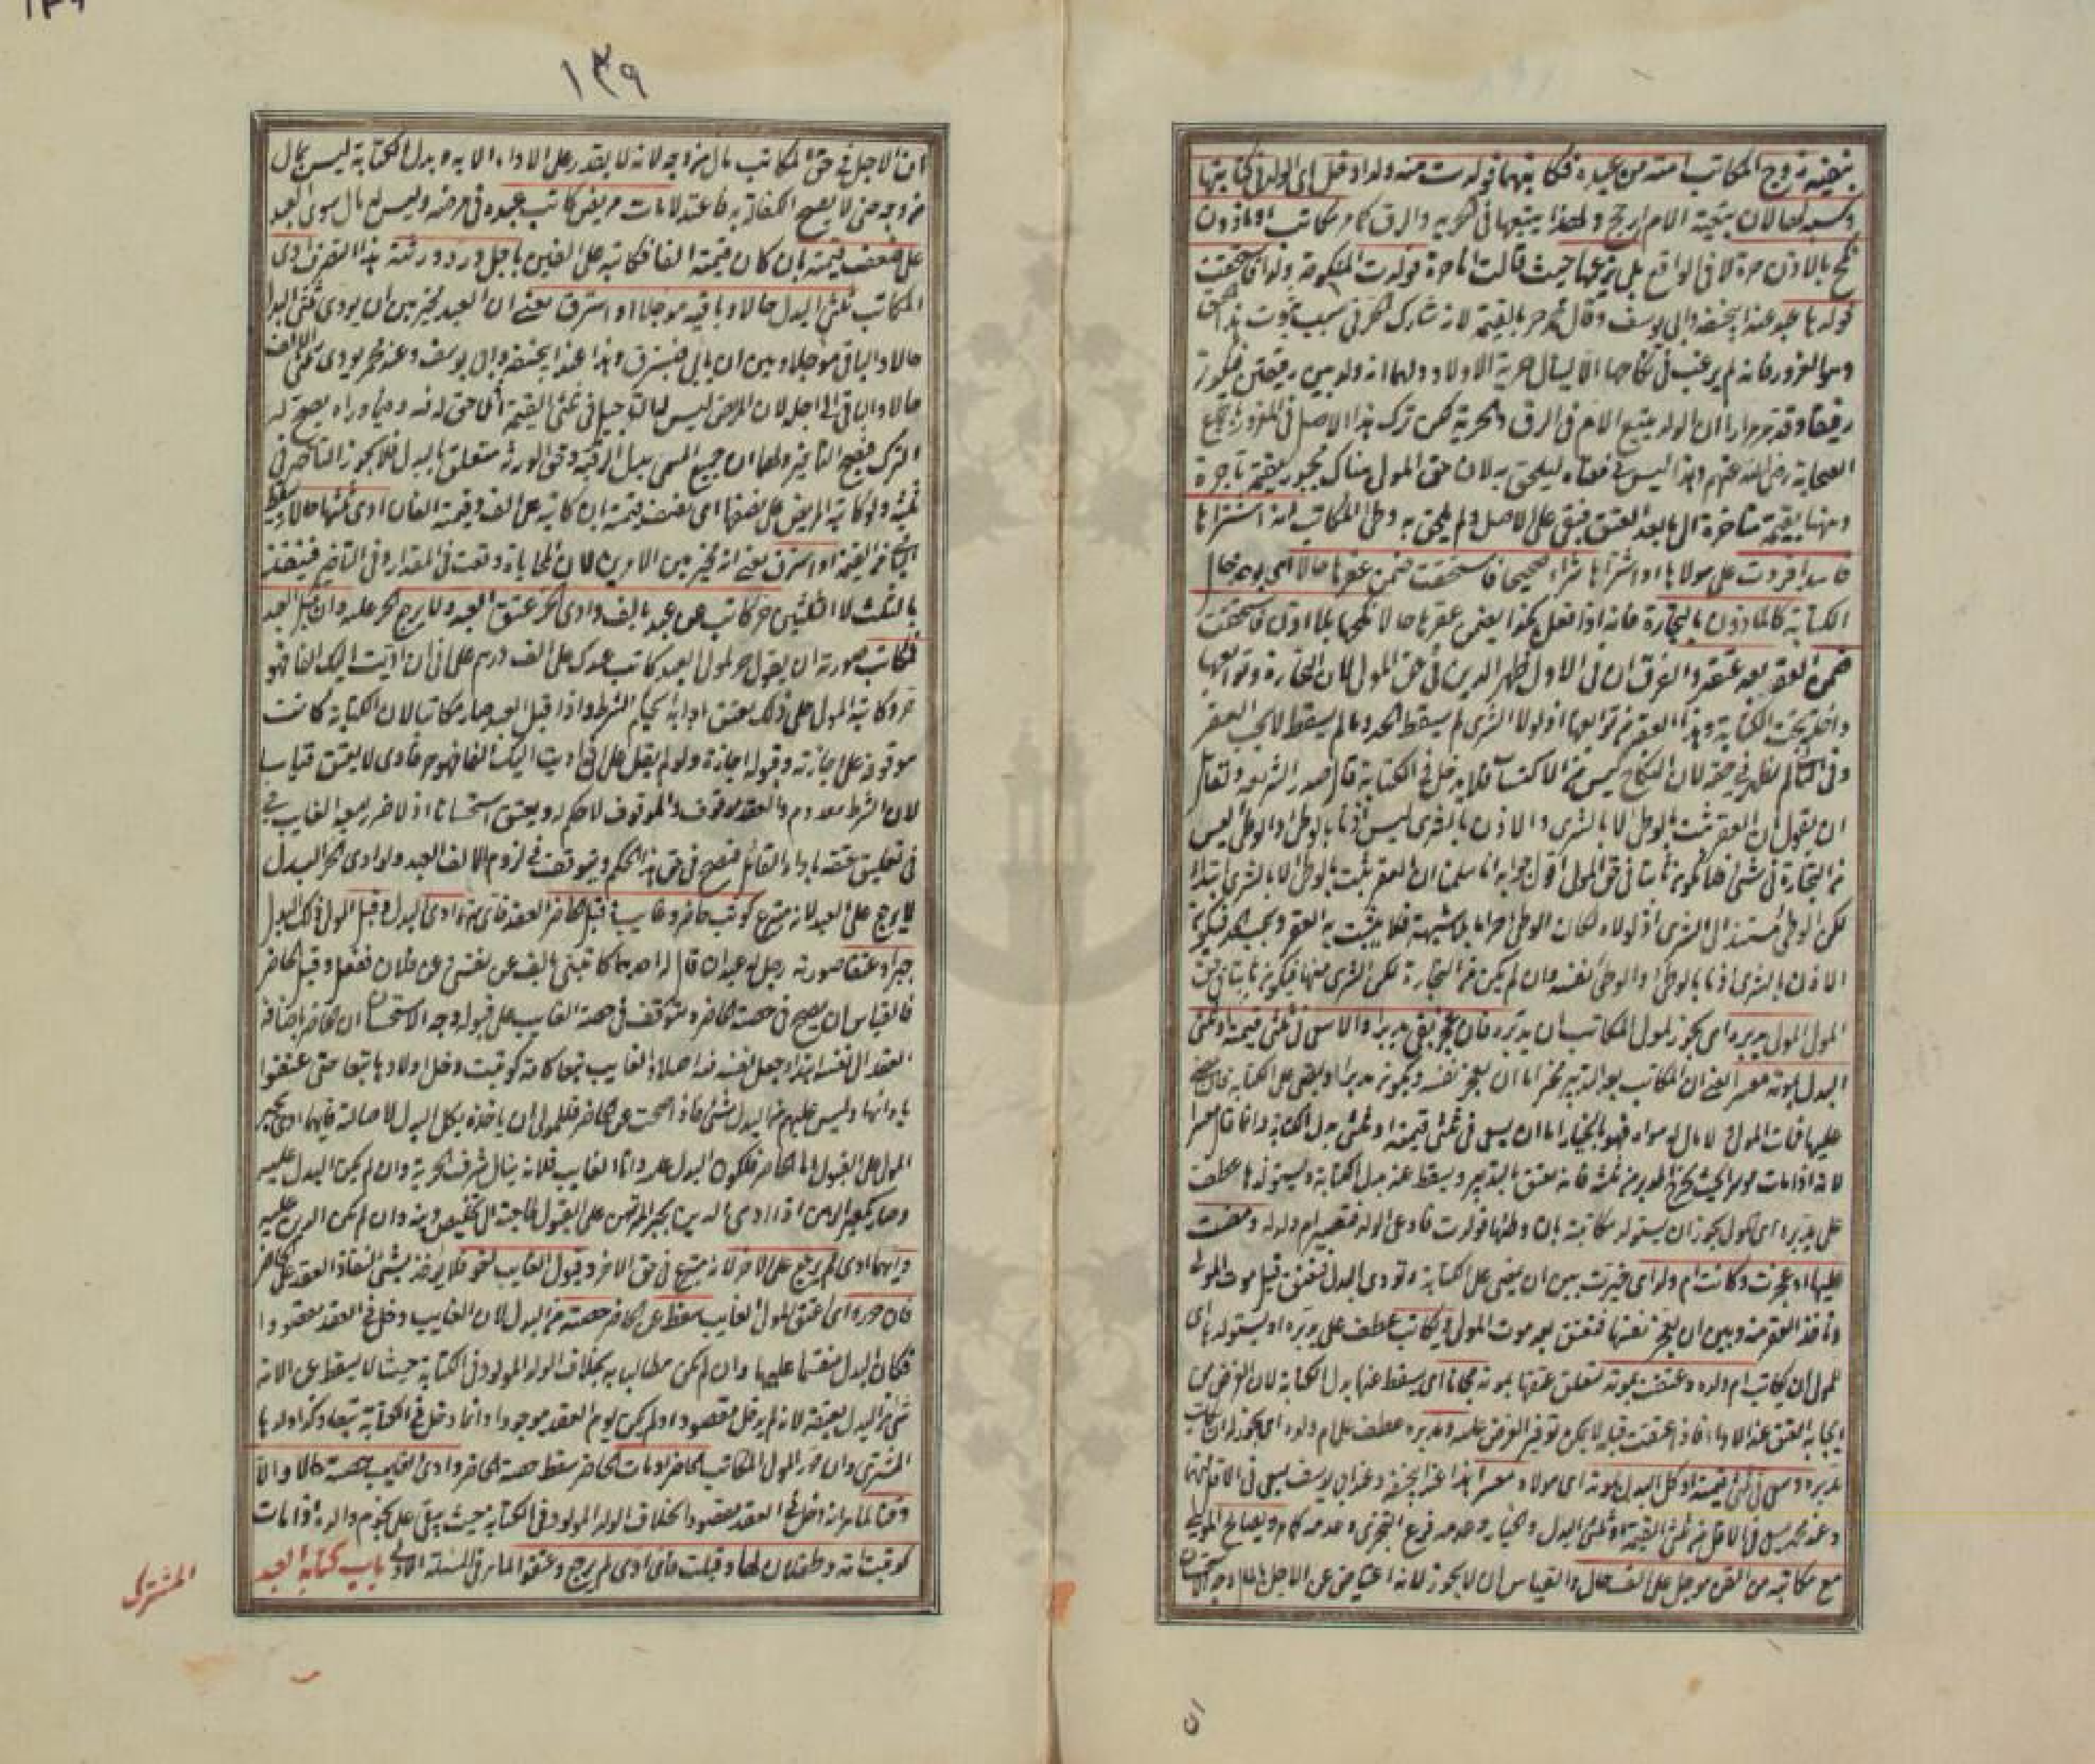 بنفيه زوج المكاتب امته من عبده فكاتبهما فولدت منه ولدا دخل اى الولد فى كتابتها
وكسبه لها لان تبعية الام ارجح ولهذا يتبعها فى الحرية والرق كما مر مكاتب او ماذون
نكح بالاذن حرة لا فى الواقع بل بزعمها حيث قالت انا حرة فولدت المنكوحة ولدا فاستحقت
فولدها عبد عند ابى حنيفة وابى يوسف وقال محمد حر بالقيمة لانه شارك الحر فى سبب ثبوت هذا الحق
وهو الغرور فانه لم يرغب فى نكاحها الا لينال حرية الاولاد ولهما انه ولد بين رقيقين فيكون
رقيقا وقد مر مرارا ان الولد يتبع الام فى الرق والحرية لكن ترك هذا الاصل فى المغرور باجماع
الصحابة رضى الله عنهم وهذا ليس فى معناه ليلحق به لان حق المولى هناك مجبور بقيمة ناجزة
وههنا بقيمة متاخرة الى ما بعد العتق فبقى على الاصل ولم يلحق به وطئ المكاتب امة اشتراها
فاسدا فردت على مولاها او اشتراها شراء صحيحا فاستحقت ضمن عقرها حالا اى يوخذ حال
الكتابة كالماذون بالتجارة فانه اذا فعل هكذا يضمن عقرها حالا نكحها بلا اذن فاستحقت
ضمن العقر بعد عتقه والفرق ان فى الاول ظهر الدين فى حق المولى لان التجارة وتوابعها
داخلة تحت الكتابة وهذا العقر من توابعها اذ لولا الشرى لم يسقط الحد وما لم يسقط لا يجب العقر
وفى الثانى لم يظهر فى حقه لان النكاح ليس من الاكتساب فلا يدخل فى الكتابة قال صدر الشريعة ولقائل
ان يقول ان العقر يثبت بالوطئ لا بالشرى والاذن بالشرى ليس اذنا بالوطئ والوطئ ليس
من التجارة فى شئ فلا يكون ثابتا فى حق المولى اقول جوابه انا سلمنا ان العقر يثبت بالوطئ لا بالشرى ابتداء
لكن الوطئ مستند الى الشرى اذ لولاه لكان الوطئ حراما بلا شبهة فلا يثبت به العقر ويجب الحد فيكون
الاذن بالشرى اذنا بالوطئ والوطئ نفسه وان لم يكن من التجارة لكن الشرى منها فيكون ثابتا فى حق
المولى المولى يدبره اى يجوز لمولى المكاتب ان يدبره فان عجز بقى مدبرا والا سعى فى ثلثى قيمته او ثلثى
البدل بموته معسرا يعنى ان المكاتب بعد التدبير مخير اما ان يعجز نفسه ويكون مدبرا او يمضى على الكتابة فان مضى
عليها فمات المولى ولا مال له سواه فهو بالخيار اما ان يسعى فى ثلثى قيمته او ثلثى بدل الكتابة وانما قال معسرا
لانه اذا مات موسرا بحيث يخرج المدبر من ثلثه فانه يعتق بالتدبير ويسقط عنه بدل الكتابة ويستولدها عطف
على يدبره اى المولى يجوز ان يستولد مكاتبته بان وطئها فولدت فادعى الولد فتصير ام ولد له ومضت
عليها او عجزت وكانت ام ولد اى خيرت بين ان تمضى على الكتابة وتودى البدل فتعتق قبل موت المولى
وتاخذ العقر منه وبين ان تعجز نفسها فتعتق بعد موت المولى ويكاتب عطف على يدبره او يستولدها اى
للمولى ان يكاتب ام ولده وعتقت بموته لتعلق عتقها بموته مجانا اى يسقط عنها بدل الكتابة لان الغرض من
ايجابه العتق عند الاداء فاذا عتقت قبله لا يمكن توفير الغرض عليه ومدبره عطف على ام ولده اى يجوز له ان يكاتب
مدبره وسعى فى ثلثى قيمته او كل البدل بموته اى مولاه معسرا هذا عند ابى حنيفة وعند ابى يوسف يسعى فى الاقل منهما
وعند محمد يسعى فى الاقل من ثلثى القيمة او ثلثى البدل والخيار وعدمه فرع التجزى وعدمه كما مر ويصالح المولى
مع مكاتبه من الفين موجل على الف حال والقياس ان لا يجوز لانه اعتياض عن الاجل بالمال وجه الاستحسان
ان
١٣٩
ان الاجل فى حق المكاتب مال من وجه لانه لا يقدر على الاداء الا به وبدل الكتابة ليس بمال
من وجه حتى لا يصح الكفالة به فاعتدلا مات مريض كاتب عبده فى مرضه وليس له مال سوى العبد
على ضعف قيمته بان كان قيمته الفا فكاتبه على الفين باجل ورد ورثته هذا التصرف ادى
المكاتب ثلثى البدل حالا وباقيه موجلا او استرق يعنى ان العبد مخير بين ان يودى ثلثى البدل
حالا والباقى موجلا وبين ان يابى فيسترق وهذا عند ابى حنيفة وابى يوسف وعند محمد يودى ثلثى الالف
حالا والباقى الى اجله لان المريض ليس له التاجيل فى ثلثى القيمة اذ لا حق له فيه وفيما وراءه يصح له
الترك فيصح التاخير ولهما ان جميع المسمى بدل الرقبة وحق الورثة متعلق بالبدل فلا يجوز التاخير فى
ثلثيه ولو كاتبه المريض على نصفها اى نصف قيمته بان كاتبه على الف وقيمته الفان ادى ثلثها حالا وسقط
الباقى من القيمة او استرق يعنى انه مخير بين الامرين لان المحاباة وقعت فى المقدار وفى التاخير فينفذ
بالثلث لا الثلثين حر كاتب عن عبد بالف وادى الحر عتق العبد ولا يرجع الحر عليه وان قبل العبد
فمكاتب صورته ان يقول حر لمولى العبد كاتب عبدك على الف درهم على انى ان اديت اليك الفا فهو
حر وكاتبه المولى على ذلك يعتق بادائه بحكم الشرط واذا قبل العبد صار مكاتبا لان الكتابة كانت
موقوفة على اجازته وقبوله اجازة ولو لم يقل على انى اديت اليك الفا فهو حر فادى لا يعتق قياسا
لان الشرط معدوم والعقد موقوف والموقوف لا حكم له ويعتق استحسانا اذ لا ضرر بعيد الغايب فى
فى تعليق عتقه باداء القائل فيصح فى حق هذا الحكم ويتوقف فى لزوم الالف العبد ولو ادى الحر البدل
لا يرجع على العبد لانه متبرع كوتب حاضر وغايب وقبل الحاضر العقد فاى منهما ادى البدل وقبل المولى ذلك البدل
جبرا وعتقا صورته رجل له عبدان قال له احدهما كاتبنى بالف عن نفسى وعن فلان ففعل وقبل الحاضر
فالقياس ان يصح فى حصة الحاضر ويتوقف فى حصة الغايب على قبوله وجه الاستحسان ان الحاضر باضافة
العقد الى نفسه ابتداء جعل نفسه فيه اصلا والغايب تبعا كامة كوتبت دخل اولادها تبعا حتى عتقوا
بادائها وليس عليهم من البدل شئ فاذا صحت عن الحاضر فللمولى ان ياخذه بكل البدل لاصالته فايهما ادى يجبر
المولى على القبول اما الحاضر فلكون البدل عليه واما الغايب فلانه ينال شرف الحرية وان لم يكن البدل عليه
وصار كمعير الرهن اذا ادى الدين يجبر المرتهن على القبول لحاجته الى تخليص عينه وان لم يكن الدين عليه
وايهما ادى لم يرجع على الاخر لانه متبرع فى حق الاخر وقبول الغايب لغو فلا يواخذ بشئ لنفاذ العقد على الحاضر
فان حرره اى عتق المولى الغايب سقط عن الحاضر حصته من البدل لان الغايب دخل فى العقد مقصودا
فكان البدل منقسما عليهما وان لم يكن مطالبا به بخلاف الولد المولود فى الكتابة حيث لا يسقط عن الام
شئ من البدل بعتقه لانه لم يدخل مقصودا ولم يكن يوم العقد موجودا وانما دخل فى الكتابة تبعا وكذا ولدها
المشترى وان حرر المولى المكاتب الحاضر او مات الحاضر سقط حصة الحاضر وادى الغايب حصته حالا والا
رد قنا لما مر انه داخل فى العقد مقصودا بخلاف الولد المولود فى الكتابة حيث يبقى على نجوم والده اذا مات
كوتبت امة وطفلان لها وقبلت فاى ادى لم يرجع وعتقوا لما مر فى المسئلة الاولى باب كتابة العبد
المشترك